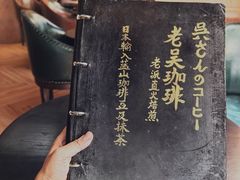 呉さんのコーヒー
老吴珈琲
老派直火焙煎
日本輸入藍山珈琲豆及抹茶